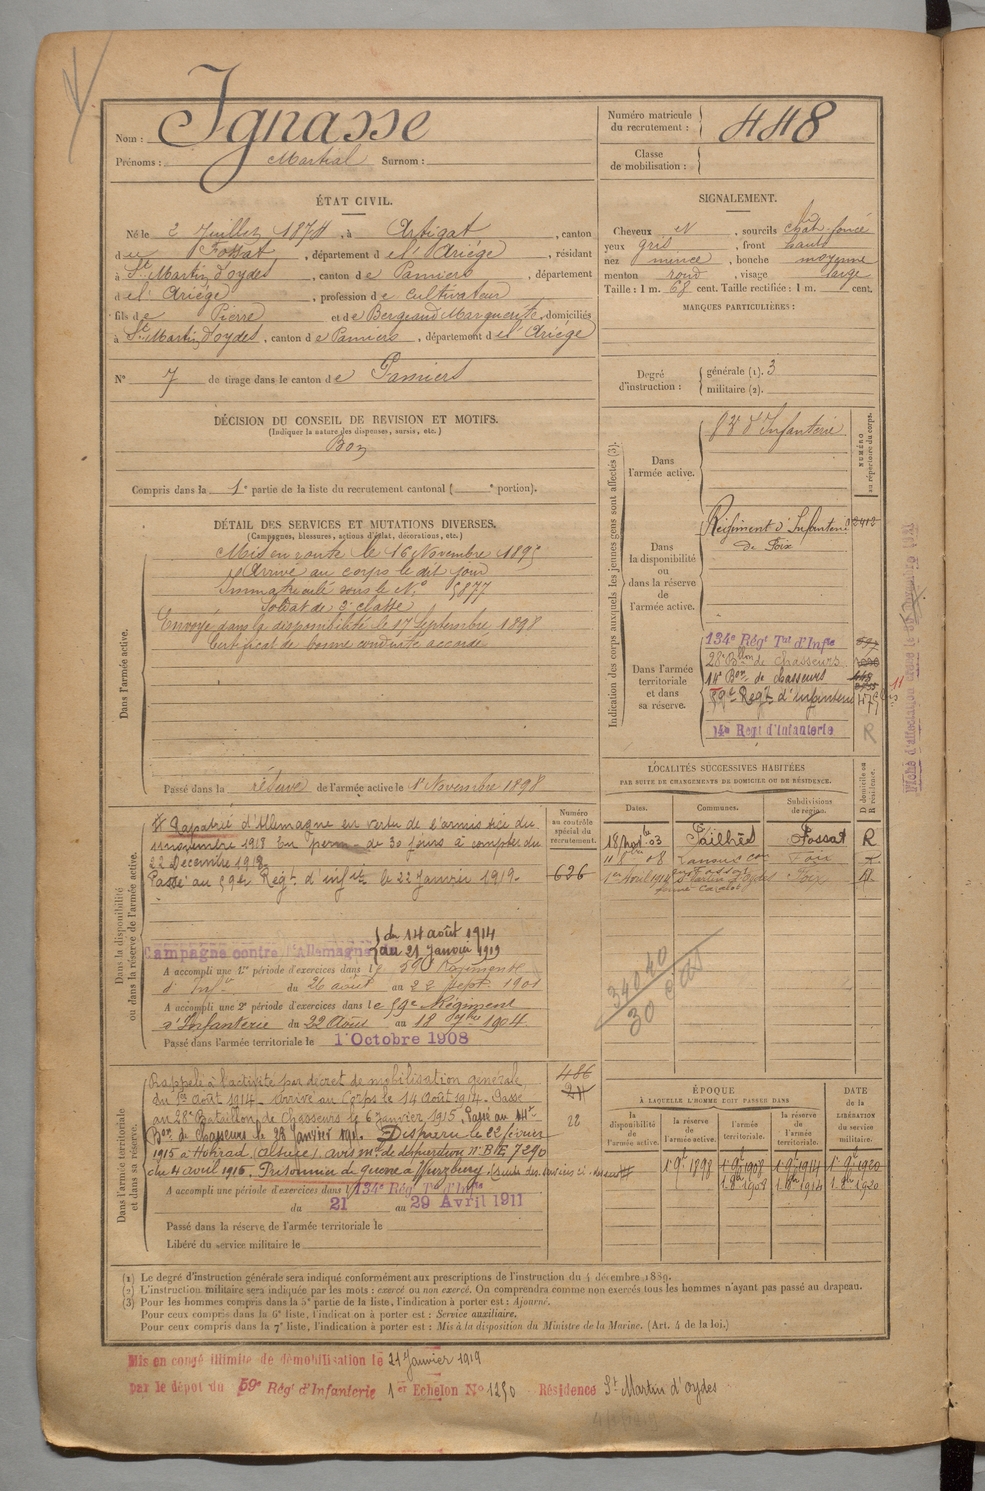 Nom : Ignasse
Prénoms : Martial Surnom :
Numéro matricule du recrutement : 448
Classe de mobilisation :
ÉTAT CIVIL.
Né le 2 Juillet 1874, à Artigat, canton
du Fossat, département de l'Ariége, résidant
à St Martin d'oydes, canton de Pamiers, département
de l'Ariége, profession de cultivateur
fils de Pierre et de Bergeaud Marguerite domiciliés
à St Martin d'oydes, canton de Pamiers, département de l'Ariége
N° 7 de tirage dans le canton de Pamiers
SIGNALEMENT.
Cheveux N, sourcils chat. foncé
yeux gris, front haut
nez mince, bouche moyenne
menton rond, visage large
Taille : 1 m. 68 cent. Taille rectifiée : 1 m. cent.
MARQUES PARTICULIÈRES :
Degré d'instruction : générale (1). 3
militaire (2).
DÉCISION DU CONSEIL DE REVISION ET MOTIFS.
(Indiquer la nature des dispenses, sursis, etc.)
Bon
Compris dans la 1e partie de la liste du recrutement cantonal ( e portion).
DÉTAIL DES SERVICES ET MUTATIONS DIVERSES.
(Campagnes, blessures, actions d'éclat, décorations, etc.)
Dans l'armée active.
Mis en route le 16 Novembre 1895
Arrivé au corps le dit jour
Immatriculé sous le N° 5877
Soldat de 2e classe
Envoyé dans la disponibilité le 17 Septembre 1898
Certificat de bonne conduite accordé
Passé dans la réserve de l'armée active le 1r Novembre 1898
Indication des corps auxquels les jeunes gens sont affectés (3).
NUMÉRO au répertoire du corps.
Dans l'armée active.
83e d'Infanterie
Dans la disponibilité ou dans la réserve de l'armée active.
Régiment d'Infanterie
de Foix
2412
Dans l'armée territoriale et dans sa réserve.
134e Régt Tal d'Infie
28e Bllon de chasseurs
14e Bon de chasseurs
59e Regt d'infanterie
14e Regt d'Infanterie
R
LOCALITÉS SUCCESSIVES HABITÉES
PAR SUITE DE CHANGEMENTS DE DOMICILE OU DE RÉSIDENCE.
Dates. Communes. Subdivisions de région. D domicile ou R résidence.
18 Nov.bre 03 Pailhès Fossat R
08 Foix
1er Avril 1914 St Martin d'oydes Foix
340 40
30
Dans la disponibilité ou dans la réserve de l'armée active.
Numéro au contrôle spécial du recrutement.
Rapatrié d'Allemagne en vertu de l'armistice du
11 novembre 1918 En perm. de 30 jours à compter du
22 Décembre 1918.
Passé au 59e Regt d'infrie le 22 Janvier 1919.
626
Campagne contre l'Allemagne du 14 août 1914
au 21 Janvier 1919
A accompli une 1re période d'exercices dans le 59e Régiment
d'Infie du 26 août au 22 Sept. 1901
A accompli une 2e période d'exercices dans le 59e Régiment
d'Infanterie du 22 Août au 18 7bre 1904
Passé dans l'armée territoriale le 1 Octobre 1908
Dans l'armée territoriale et dans sa réserve.
Rappelé à l'activité par décret de mobilisation générale
du 1er Août 1914. Arrivé au Corps le 14 Août 1914. Passé
au 28e Bataillon de Chasseurs le 6 Janvier 1915. Passé au 14e
Bon de Chasseurs le 28 Janvier 1915. Disparu le 22 février
1915 à Hohrad (Alsace) avis mle de disparition N° BE 7290
du 4 avril 1915. Prisonnier de guerre à Wurzburg (suite des services ci-dessus)
486
24
22
A accompli une période d'exercices dans le 134e Rég Tal d'Infie
du 21 au 29 Avril 1911
Passé dans la réserve de l'armée territoriale le
Libéré du service militaire le
ÉPOQUE
À LAQUELLE L'HOMME DOIT PASSER DANS
la disponibilité de l'armée active. la réserve de l'armée active. l'armée territoriale. la réserve de l'armée territoriale.
DATE de la LIBÉRATION du service militaire.
1 9t 1898 1 9t 1908 1 9t 1914 1 9t 1920
1. 8bre 1908 1. 8bre 1914 1. 8bre 1920
(1) Le degré d'instruction générale sera indiqué conformément aux prescriptions de l'instruction du 4 décembre 1889.
(2) L'instruction militaire sera indiquée par les mots : exercé ou non exercé. On comprendra comme non exercés tous les hommes n'ayant pas passé au drapeau.
(3) Pour les hommes compris dans la 5e partie de la liste, l'indication à porter est : Ajourné.
Pour ceux compris dans la 6e liste, l'indication à porter est : Service auxiliaire.
Pour ceux compris dans la 7e liste, l'indication à porter est : Mis à la disposition du Ministre de la Marine. (Art. 4 de la loi.)
Mis en congé illimité de démobilisation le 21 Janvier 1919
par le dépôt du 59e Rég d'Infanterie 1er Echelon No 1250 Résidence St Martin d'oydes